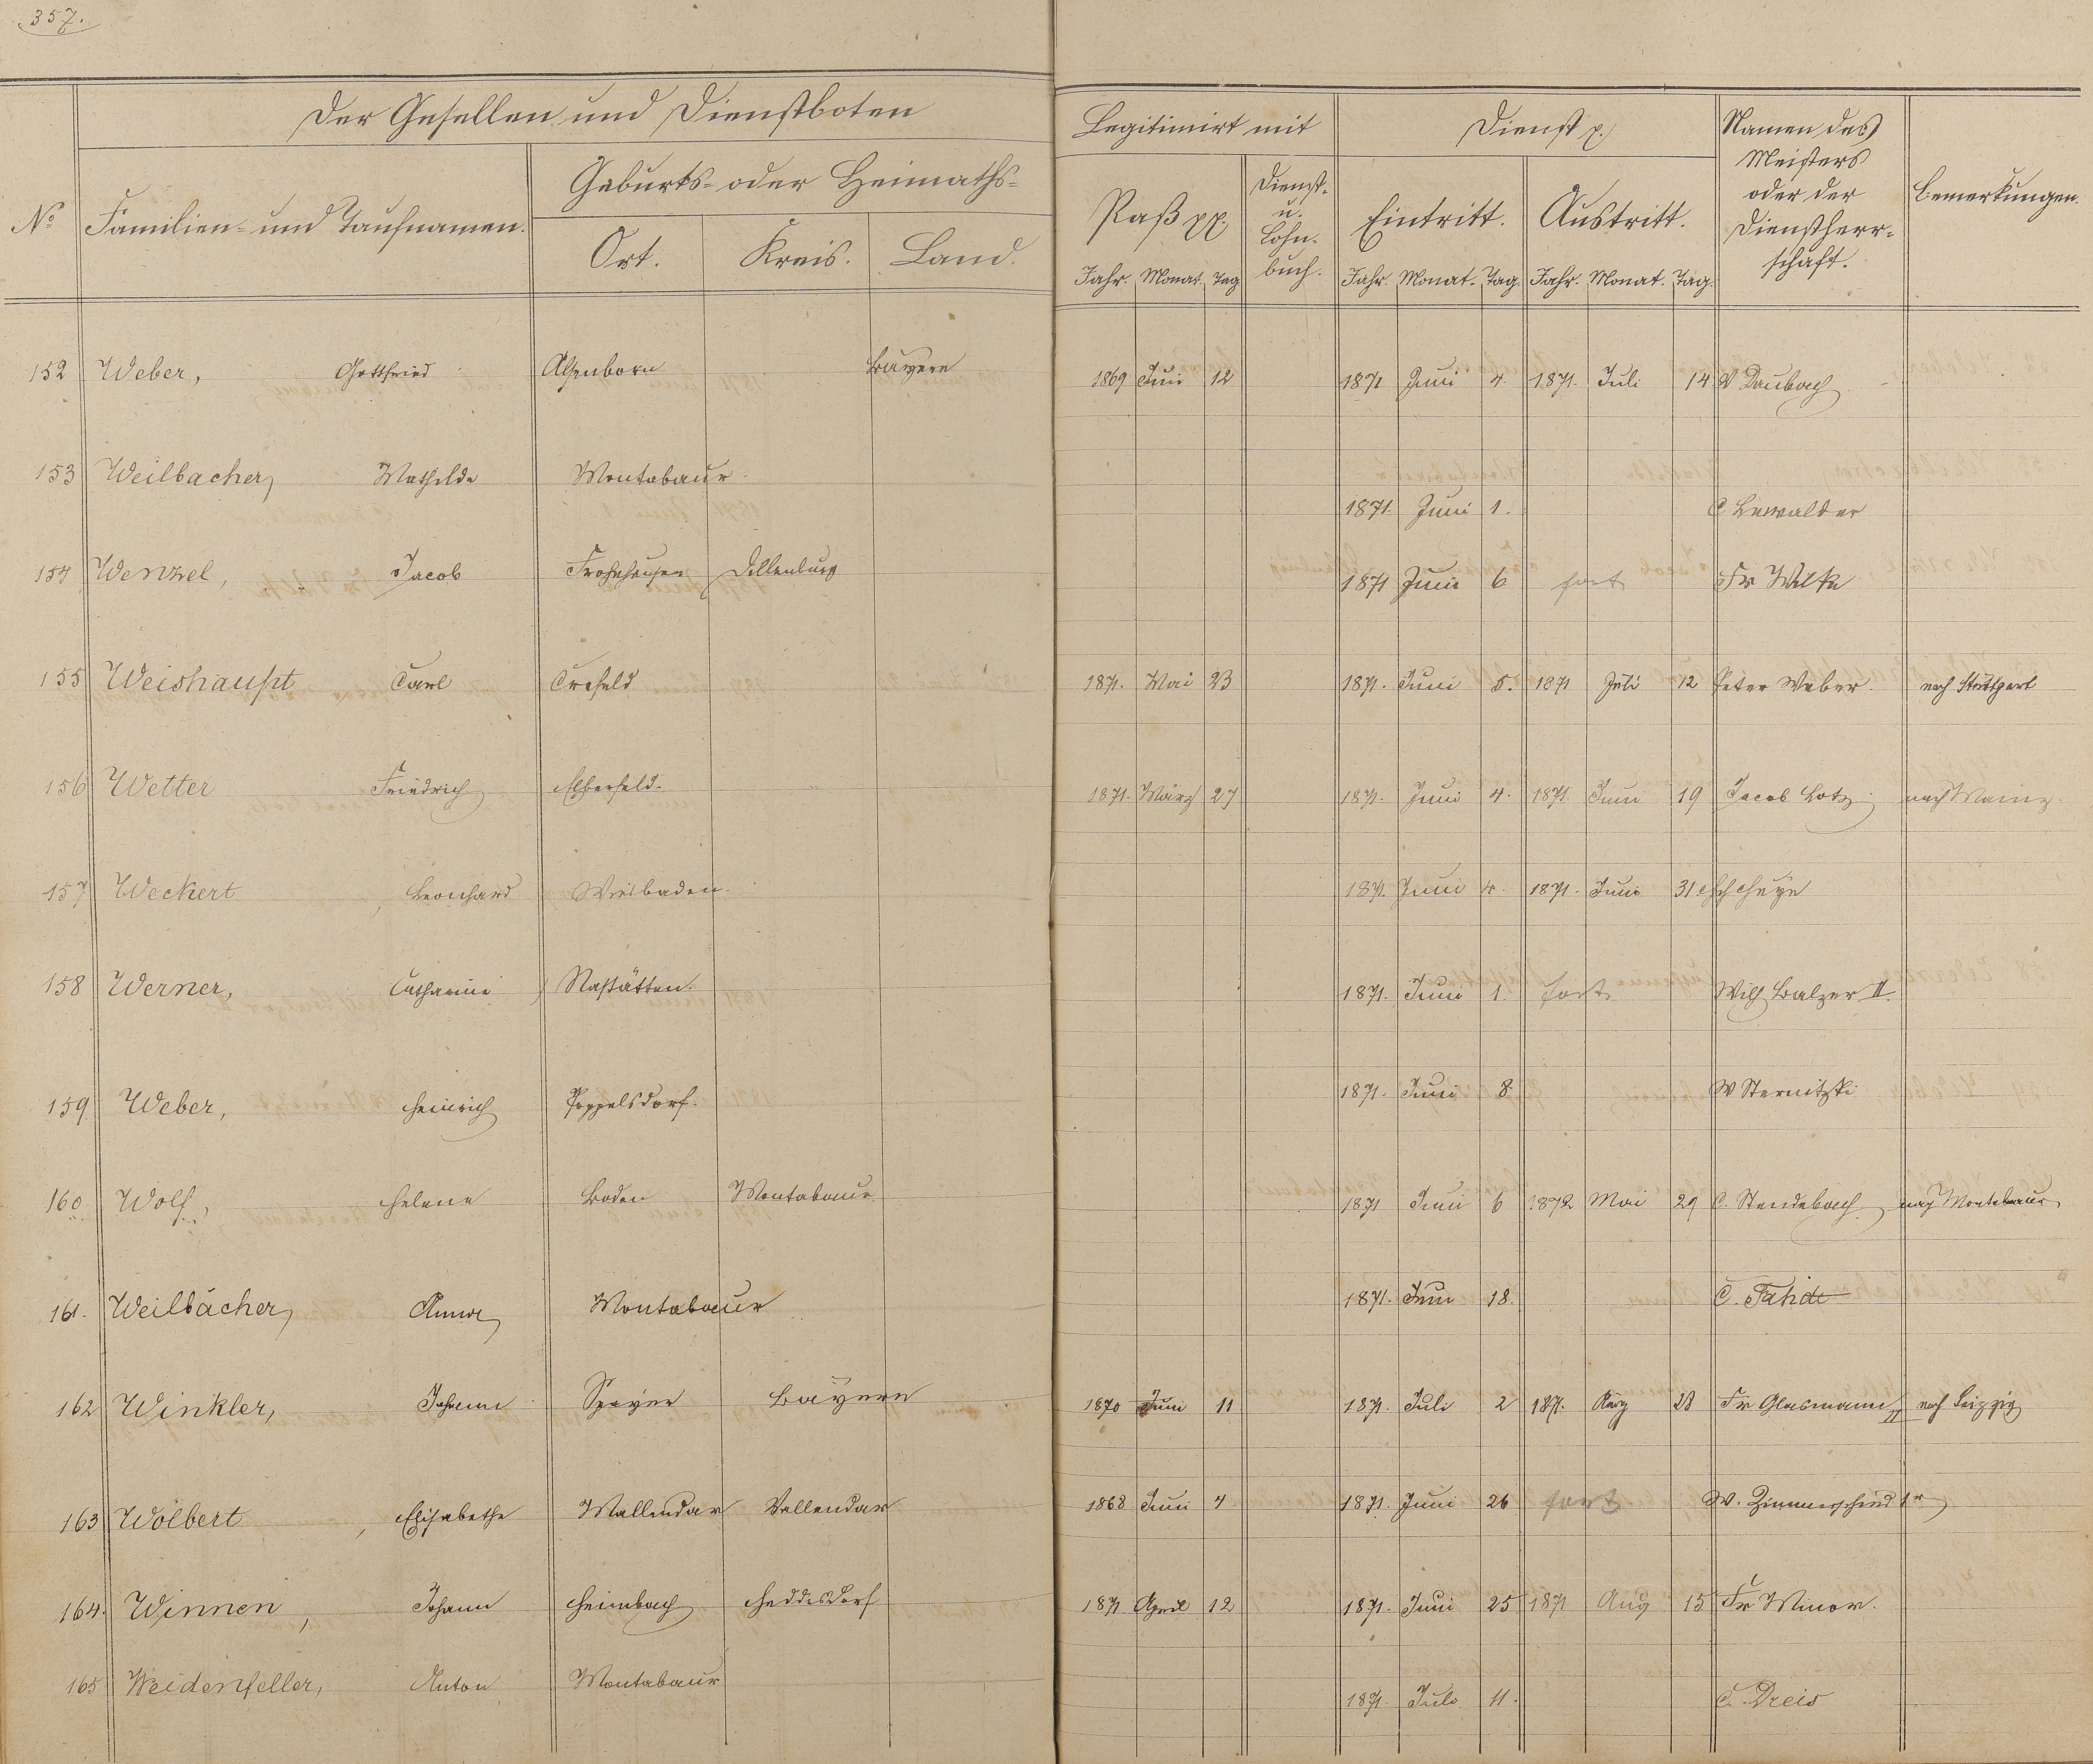 357.
Der Gesellen und Dienstboten
Legitimirt mit
Dienst p.
Namen des
Meisters
oder der
Dienstherr-
schaft.
Bemerkungen.
No
Familien- und Taufnamen.
Geburts- oder Heimaths-
Ort. Kreis. Land.
Paß pp.
Dienst-
u.
Lohn-
buch.
Eintritt. Austritt.
Jahr. Monat. Tag Jahr. Monat. Tag. Jahr. Monat. Tag.
152 Weber, Gottfried Alsenborn Bayern 1869 Juni 12 1871 Juni 4. 1871. Juli 14 W Daubach
153 Weilbacher, Mathilde Montabaur 1871. Juni 1. C Lewalder
154 Wenzel, Jacob Frohnhausen Dillenburg 1871 Juni 6 fort Fr
155 Weishaupt, Carl Crefeld 1871. Mai 23 1871. Juni 5. 1871 Juli 12 Peter Weber. nach Stuttgart
156 Wetter Friedrich Elberfeld. 1871. März 27 1871. Juni 4. 1871. Juni 19 Jacob Lotz nach Mainz.
157 Weckert, Leonhard Wiesbaden. 1871. Juni 4. 1871. Juni 31.
158 Werner, Catharine Nastätten. 1871. Juni 1. fort Wilh Balzer II.
159 Weber, Heinrich Poppelsdorf. 1871. Juni 8 W Sternitzki
160 Wolf, Helene Boden Montabaur 1871 Juni 6 1872 Mai 29 C. Stendebach nach Montabaur
161. Weilbächer, Anna Montabaur 1871. Juni 18. C.
162 Winkler, Johann Speyer Bayern 1870 Juni 11 1871. Juli 2 1871. Aug 28 Fr Glasmann II nach Leipzig
163 Wölbert, Elisabethe Mallendar Vallendar 1868 Juni 4 1871. Juni 26 fort W. Zimmerschied 1r
164. Winnen, Johann Heimbach Heddesdorf 1871 April 12 1871. Juni 25 1871 Aug 15 Fr Minor.
165 Weidenfeller, Anton Montabaur 1871. Juli 11. C. Dreis